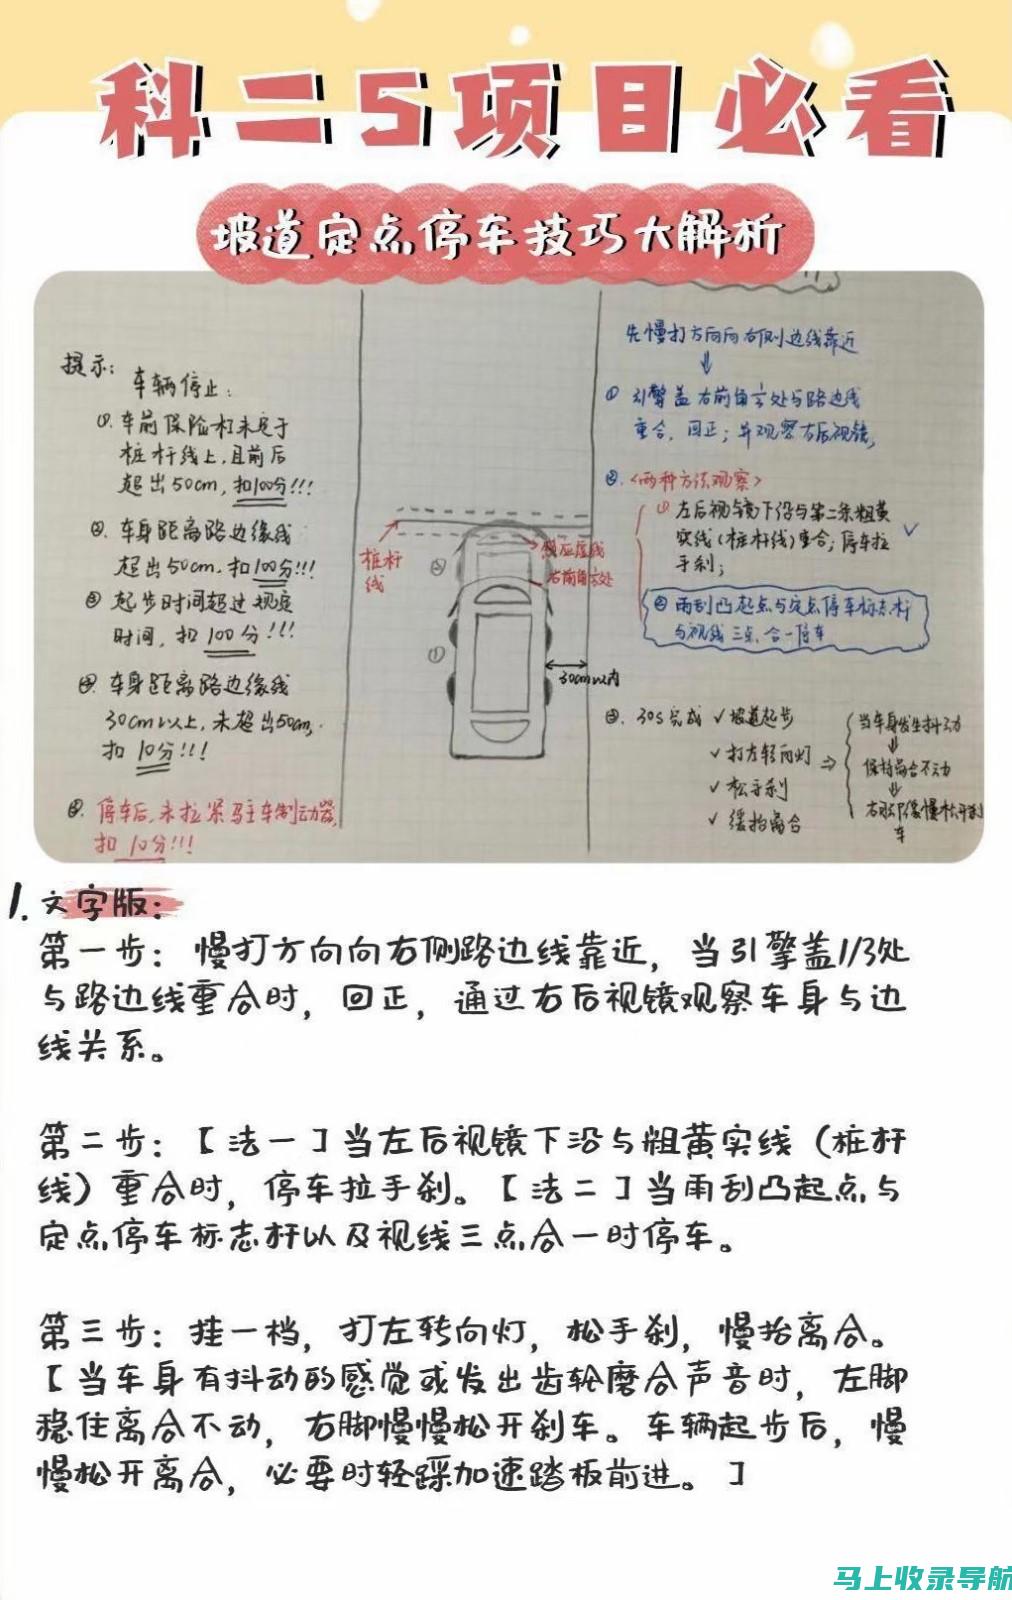 科二5项目必看
坡道定点停车技巧大解析
提示:
车辆停止:
①.车前保险杠未定于
桩杆线上,且前后
超出50cm,扣100分!!!
②.车身距离路边缘线
超出50cm,扣100分!!!
③起步时间超过规定
时间,扣100分!!!
④.车身距离路边缘线
30cm以上,未超出50cm,
扣10分!!!
停车后,未拉紧驻车制动器,
扣10分!!!
桩杆
线
感应虚线
右前角⅓处
②
①
30cm以内
先慢打方向向右侧边线靠近
① 引擎盖右前角⅓处与路边线
重合,回正;并观察右后视镜,
②.<两种方法观察>
①左后视镜下沿与第二条粗黄
实线(桩杆线)重合;停车拉
手刹;
②雨刮凸起点与定点停车标志杆
与视线三点合一停车
③.30s完成 ✓坡道起步
✓打左转向灯
✓松手刹
✓缓抬离合
当车身发生抖动
保持离合不动
右脚缓慢松开刹
车
1.文字版:
第一步:慢打方向向右侧路边线靠近,当引擎盖1/3处
与路边线重合时,回正,通过右后视镜观察车身与边
线关系。
第二步:【法一】当左后视镜下沿与粗黄实线(桩杆
线)重合时,停车拉手刹。【法二】当雨刮凸起点与
定点停车标志杆以及视线三点合一时停车。
第三步:挂一档,打左转向灯,松手刹,慢抬离合。
【当车身有抖动的感觉或发出齿轮磨合声音时,左脚
稳住离合不动,右脚慢慢松开刹车。车辆起步后,慢
慢松开离合,必要时轻踩加速踏板前进。】
马上收录导航